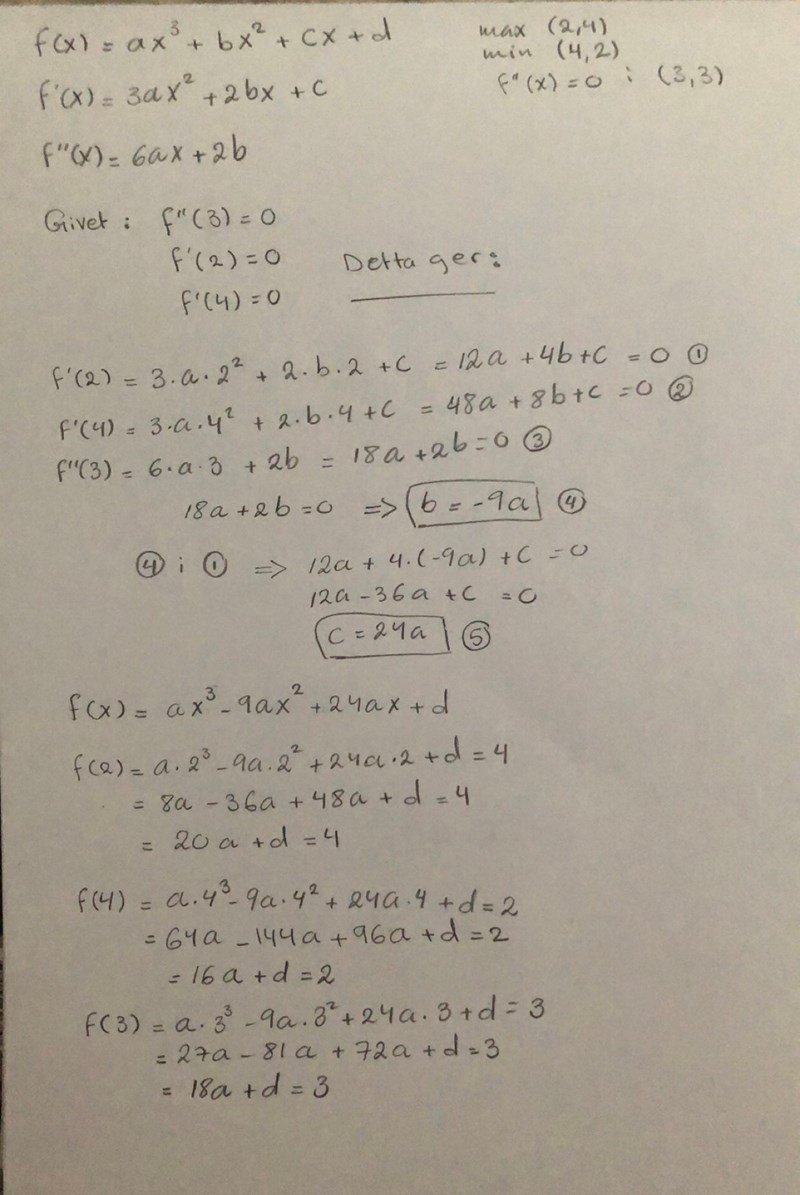 f(x) = ax³ + bx² + cx + d
max (2,4)
min (4,2)
f'(x) = 3ax² + 2bx + c
f''(x) = 0 i (3,3)
f''(x) = 6ax + 2b
Givet : f''(3) = 0
f'(2) = 0 Detta ger:
f'(4) = 0
f'(2) = 3·a·2² + 2·b·2 + c = 12a + 4b + c = 0 ①
f'(4) = 3·a·4² + 2·b·4 + c = 48a + 8b + c = 0 ②
f''(3) = 6·a·3 + 2b = 18a + 2b = 0 ③
18a + 2b = 0 => b = -9a ④
④ i ① => 12a + 4·(-9a) + c = 0
12a - 36a + c = 0
c = 24a ⑤
f(x) = ax³ - 9ax² + 24ax + d
f(2) = a·2³ - 9a·2² + 24a·2 + d = 4
= 8a - 36a + 48a + d = 4
= 20a + d = 4
f(4) = a·4³ - 9a·4² + 24a·4 + d = 2
= 64a - 144a + 96a + d = 2
= 16a + d = 2
f(3) = a·3³ - 9a·3² + 24a·3 + d = 3
= 27a - 81a + 72a + d = 3
= 18a + d = 3